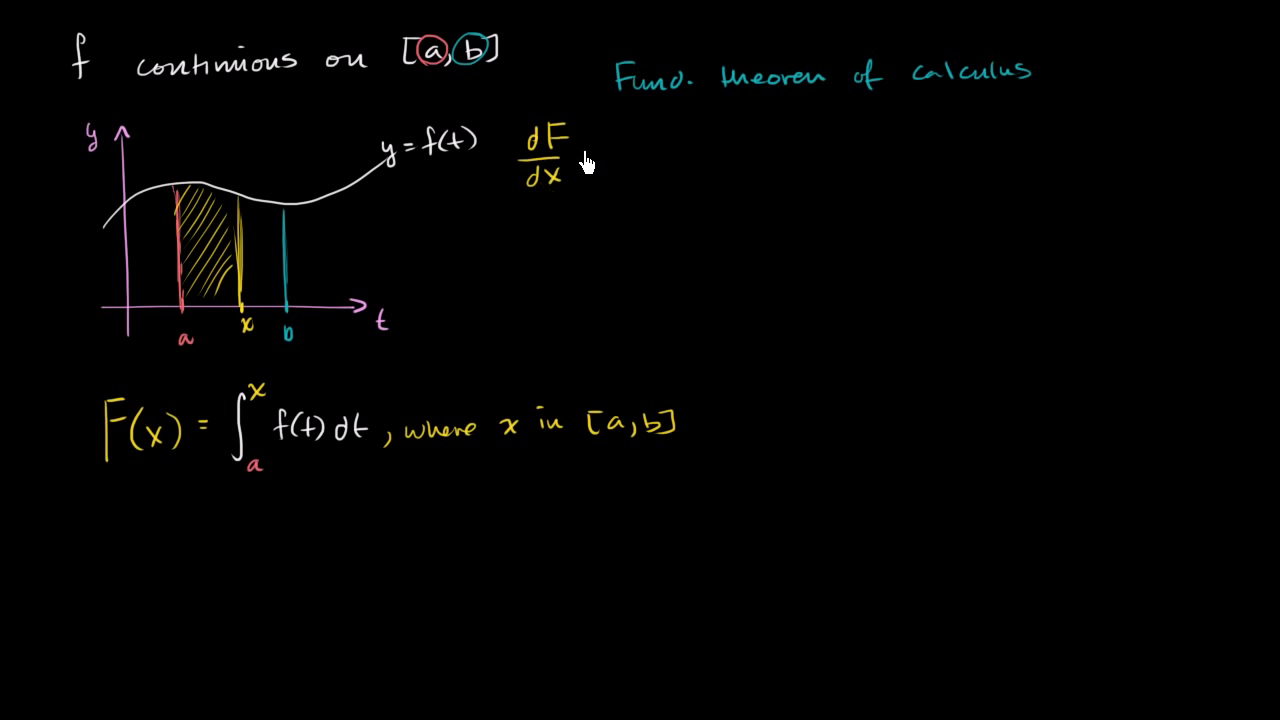 f continuous on [a,b]
Fund. theorem of calculus
y
y = f(t)
dF
dx
a
x
b
t
F(x) = ∫ₐˣ f(t) dt, where x in [a,b]